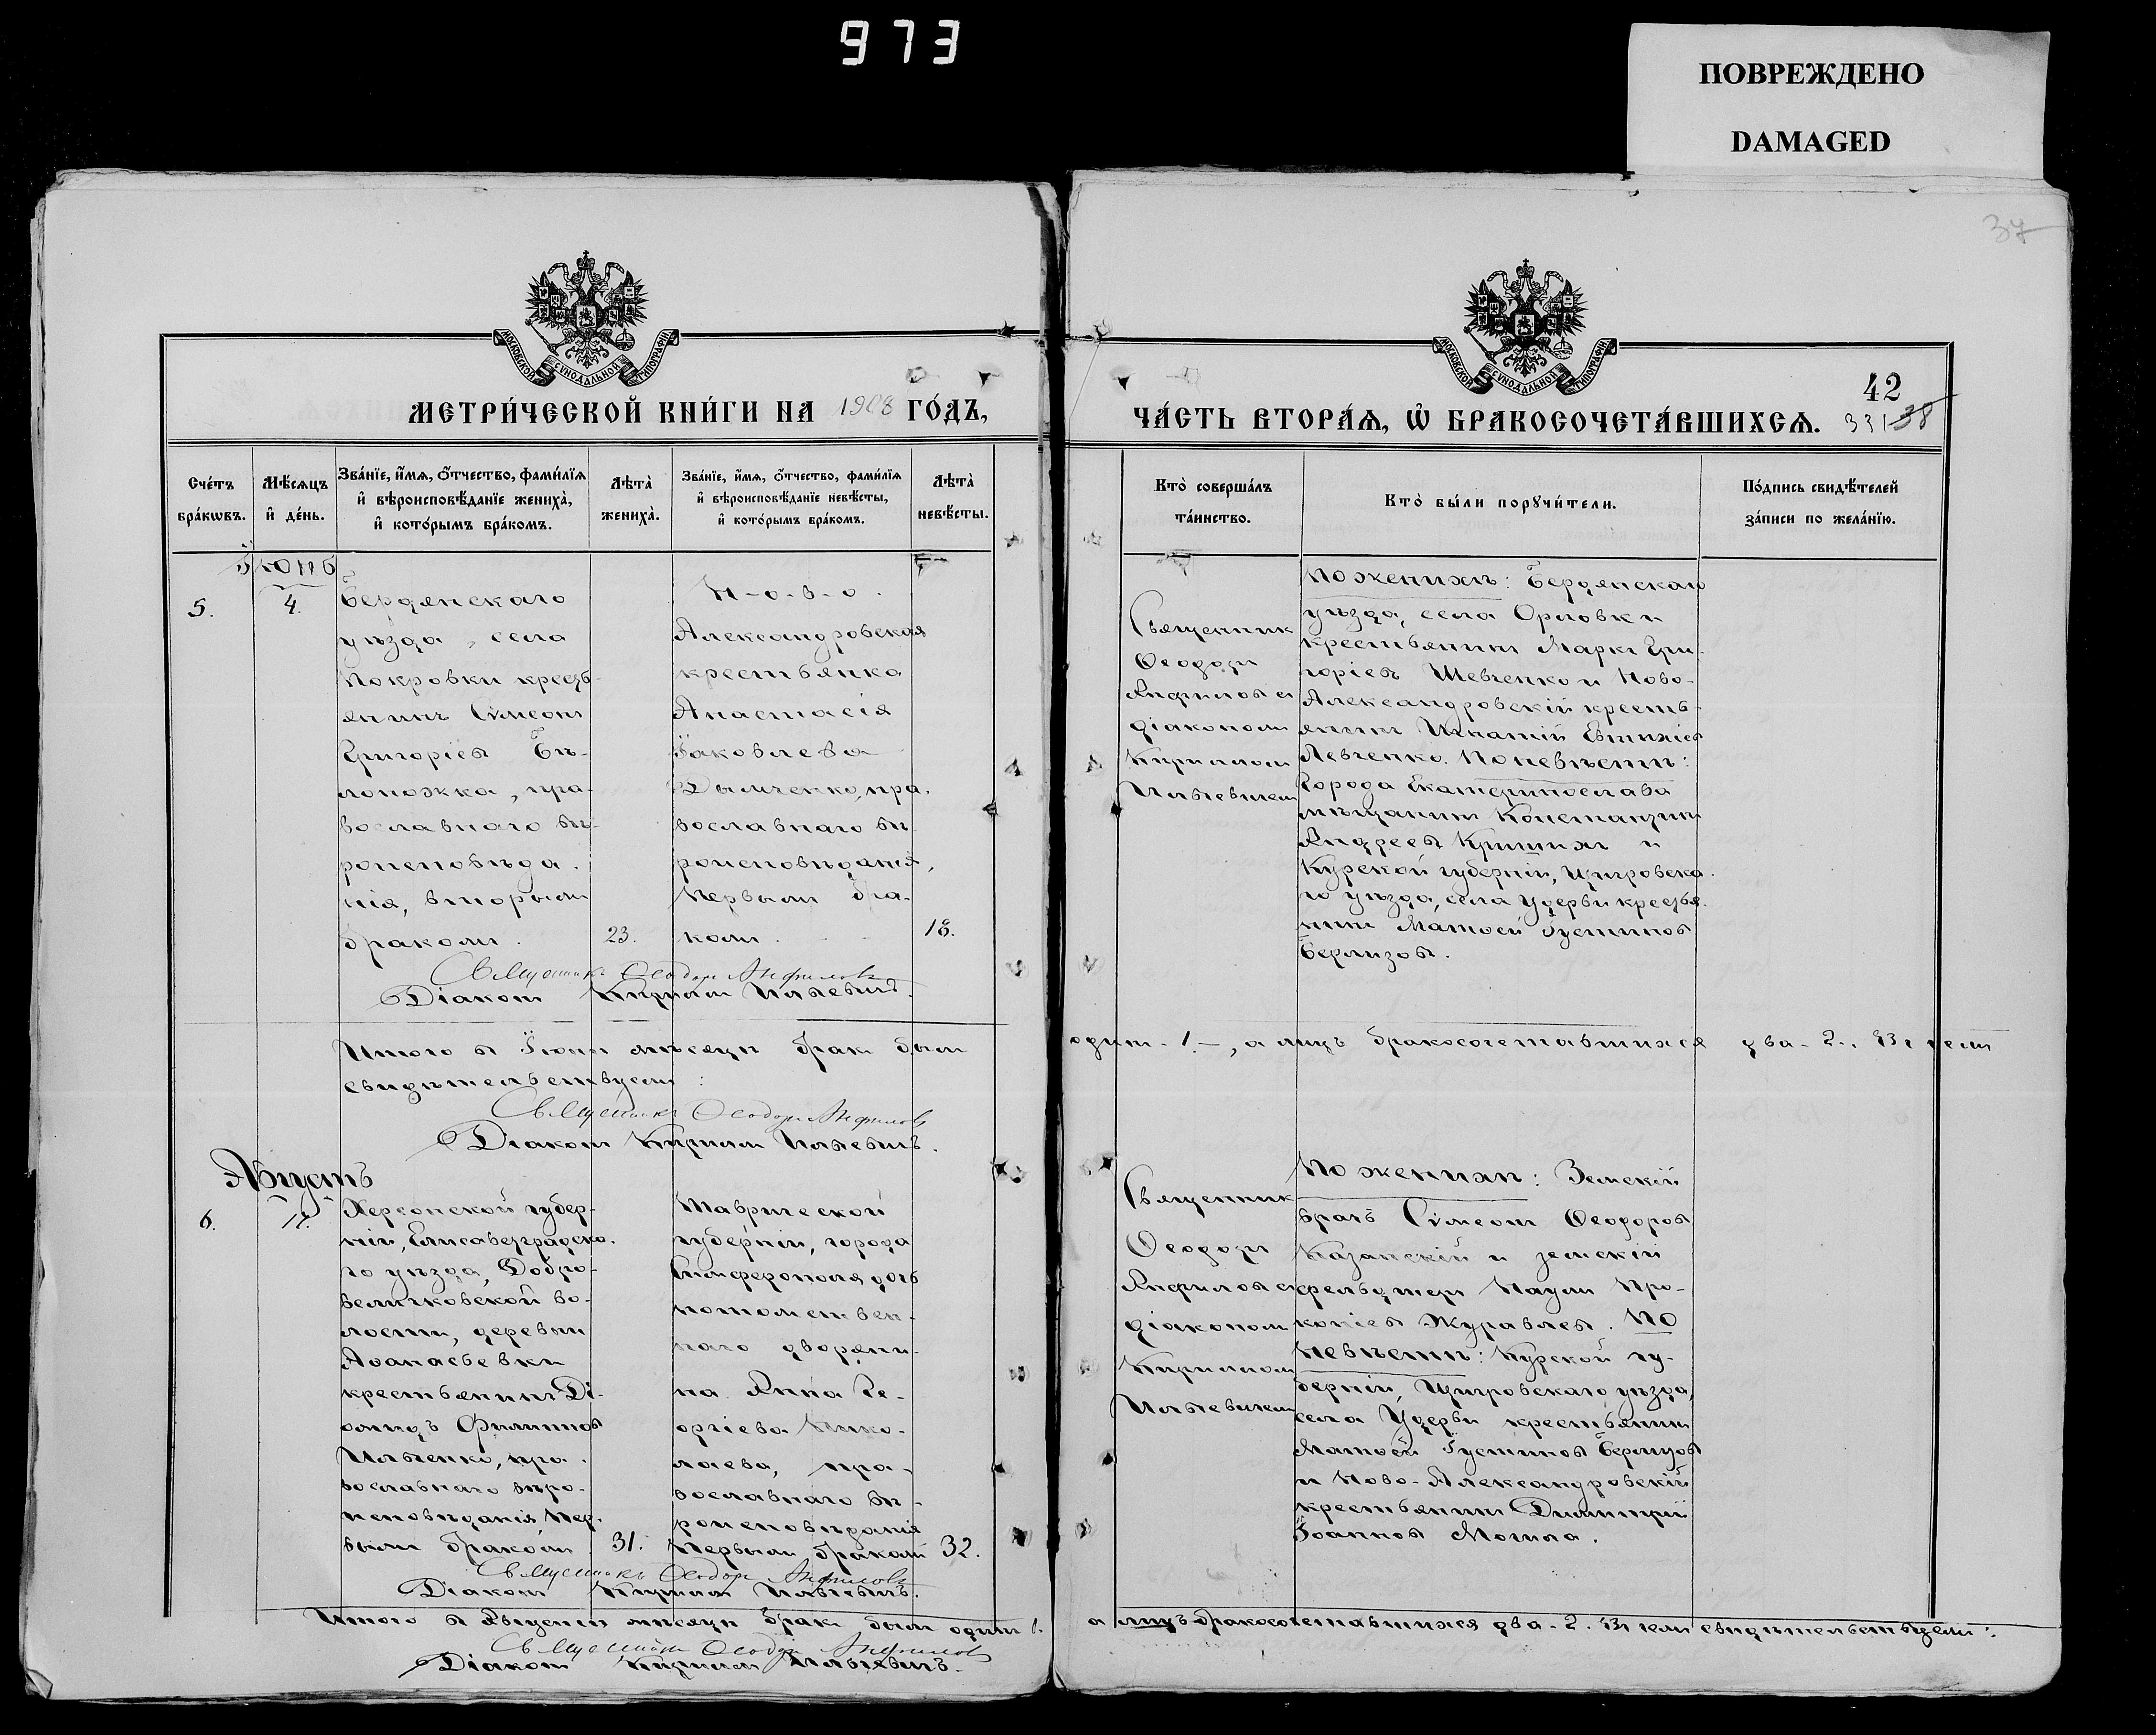 973
ПОВРЕЖДЕНО
DAMAGED
37
МОСКОВСКОЙ СѴНОДАЛЬНОЙ ТИПОГРАФІИ
МОСКОВСКОЙ СѴНОДАЛЬНОЙ ТИПОГРАФІИ
МЕТРИ́ЧЕСКОЙ КНИ́ГИ НА 1908 ГО́ДЪ,
42
ЧА́СТЬ ВТОРА́Ѧ, Ѡ҆ БРАКОСОЧЕТА́ВШИХСѦ. 331 38
Сче́тъ бра́кѡвъ.
Мѣ́сѧцъ и҆ де́нь.
Зва́нїе, и҆́мѧ, ѻ҆́тчество, фами́лїѧ и҆ вѣроисповѣ́данїе жениха̀, и҆ кото́рымъ бра́комъ.
Лѣта̀ жениха̀.
Зва́нїе, и҆́мѧ, ѻ҆́тчество, фами́лїѧ и҆ вѣроисповѣ́данїе невѣ́сты, и҆ кото́рымъ бра́комъ.
Лѣта̀ невѣ́сты.
Кто̀ соверша́лъ та́инство.
Кто̀ бы́ли порꙋчи́тели.
По́дпись свидѣ́телей за́писи по жела́нїю.
Іюнь
5.
4.
Бердянскаго
уѣзда, села
Покровки кресть-
янинъ Сѵмеонъ
Григоріевъ Бѣ-
лоножка, пра-
вославнаго вѣ-
роисповѣда-
нія, вторымъ
бракомъ.
23.
Н-о-в-о-
Александровская
крестьянка
Анастасія
Іаковлева
Дымченко, пра-
вославнаго вѣ-
роисповѣданія,
первымъ бра-
комъ.
18.
Священник
Ѳеодоръ
Анфиловъ съ
діакономъ
Кирилломъ
Ильевичемъ
По женихѣ: Бердянскаго
уѣзда, села Орловки
крестьянинъ Маркъ Гри-
горіевъ Шевченко и Ново-
Александровскій кресть-
янинъ Игнатій Евтихіевъ
Левченко. По невѣстѣ:
Города Екатеринослава
мѣщанинъ Константинъ
Андреевъ и
Курской губерніи, Щигровска-
го уѣзда, села Удерви крестья-
нинъ Матѳей Іустиновъ
Берлизовъ.
Священникъ Ѳеодоръ Анфиловъ
Діаконъ Кириллъ Ильевичъ.
Итого въ Іюнѣ мѣсяцѣ бракъ былъ одинъ - 1. -, а лицъ бракосочетавшихся два - 2. Въ чемъ
свидѣтельствуемъ:
Священникъ Ѳеодоръ Анфиловъ
Діаконъ Кириллъ Ильевичъ.
Августъ
6.
Херсонской губер-
ніи, Елисаветградска-
го уѣзда, Добро-
величковской во-
лости, деревни
Аѳанасьевки
крестьянинъ Ді-
омидъ Филипповъ
Ильченко, пра-
вославнаго вѣро-
исповѣданія, пер-
вымъ бракомъ.
31.
Таврической
губерніи, города
Симферополя дочь
потомствен-
наго дворяни-
на Анна Ге-
оргіева Нико-
лаева, пра-
вославнаго вѣ-
роисповѣданія
первымъ бракомъ
32.
Священник
Ѳеодоръ
Анфиловъ съ
діакономъ
Кирилломъ
Ильевичемъ
По женихѣ: Земскій
врачъ Сѵмеонъ Ѳеодоровъ
Казанскій и земскій
фельдшеръ Павелъ Про-
копіевъ Журавлевъ. По
невѣстѣ: Курской гу-
берніи, Щигровскаго уѣзда,
села Удерви крестьянинъ
Матѳей Іустиновъ Берлизовъ
и Ново-Александровскій
крестьянинъ Димитрій
Іоанновъ Могила.
Священникъ Ѳеодоръ Анфиловъ
Діаконъ Кириллъ Ильевичъ.
Итого въ Августѣ мѣсяцѣ бракъ былъ одинъ 1. а лицъ бракосочетавшихся два - 2. Въ чемъ свидѣтельствуемъ:
Священникъ Ѳеодоръ Анфиловъ
Діаконъ Кириллъ Ильевичъ.